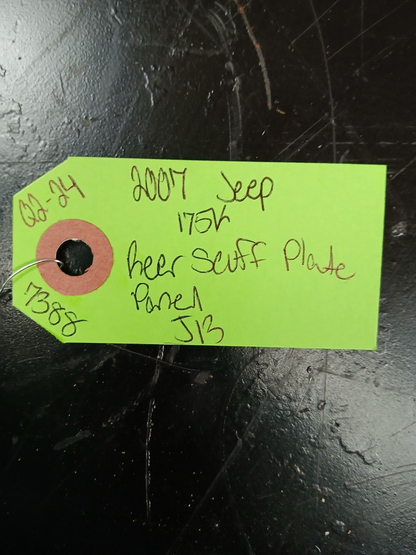 Q2-24
7388
2007 Jeep
175K
Reer Scuff Plate
Panel
J13